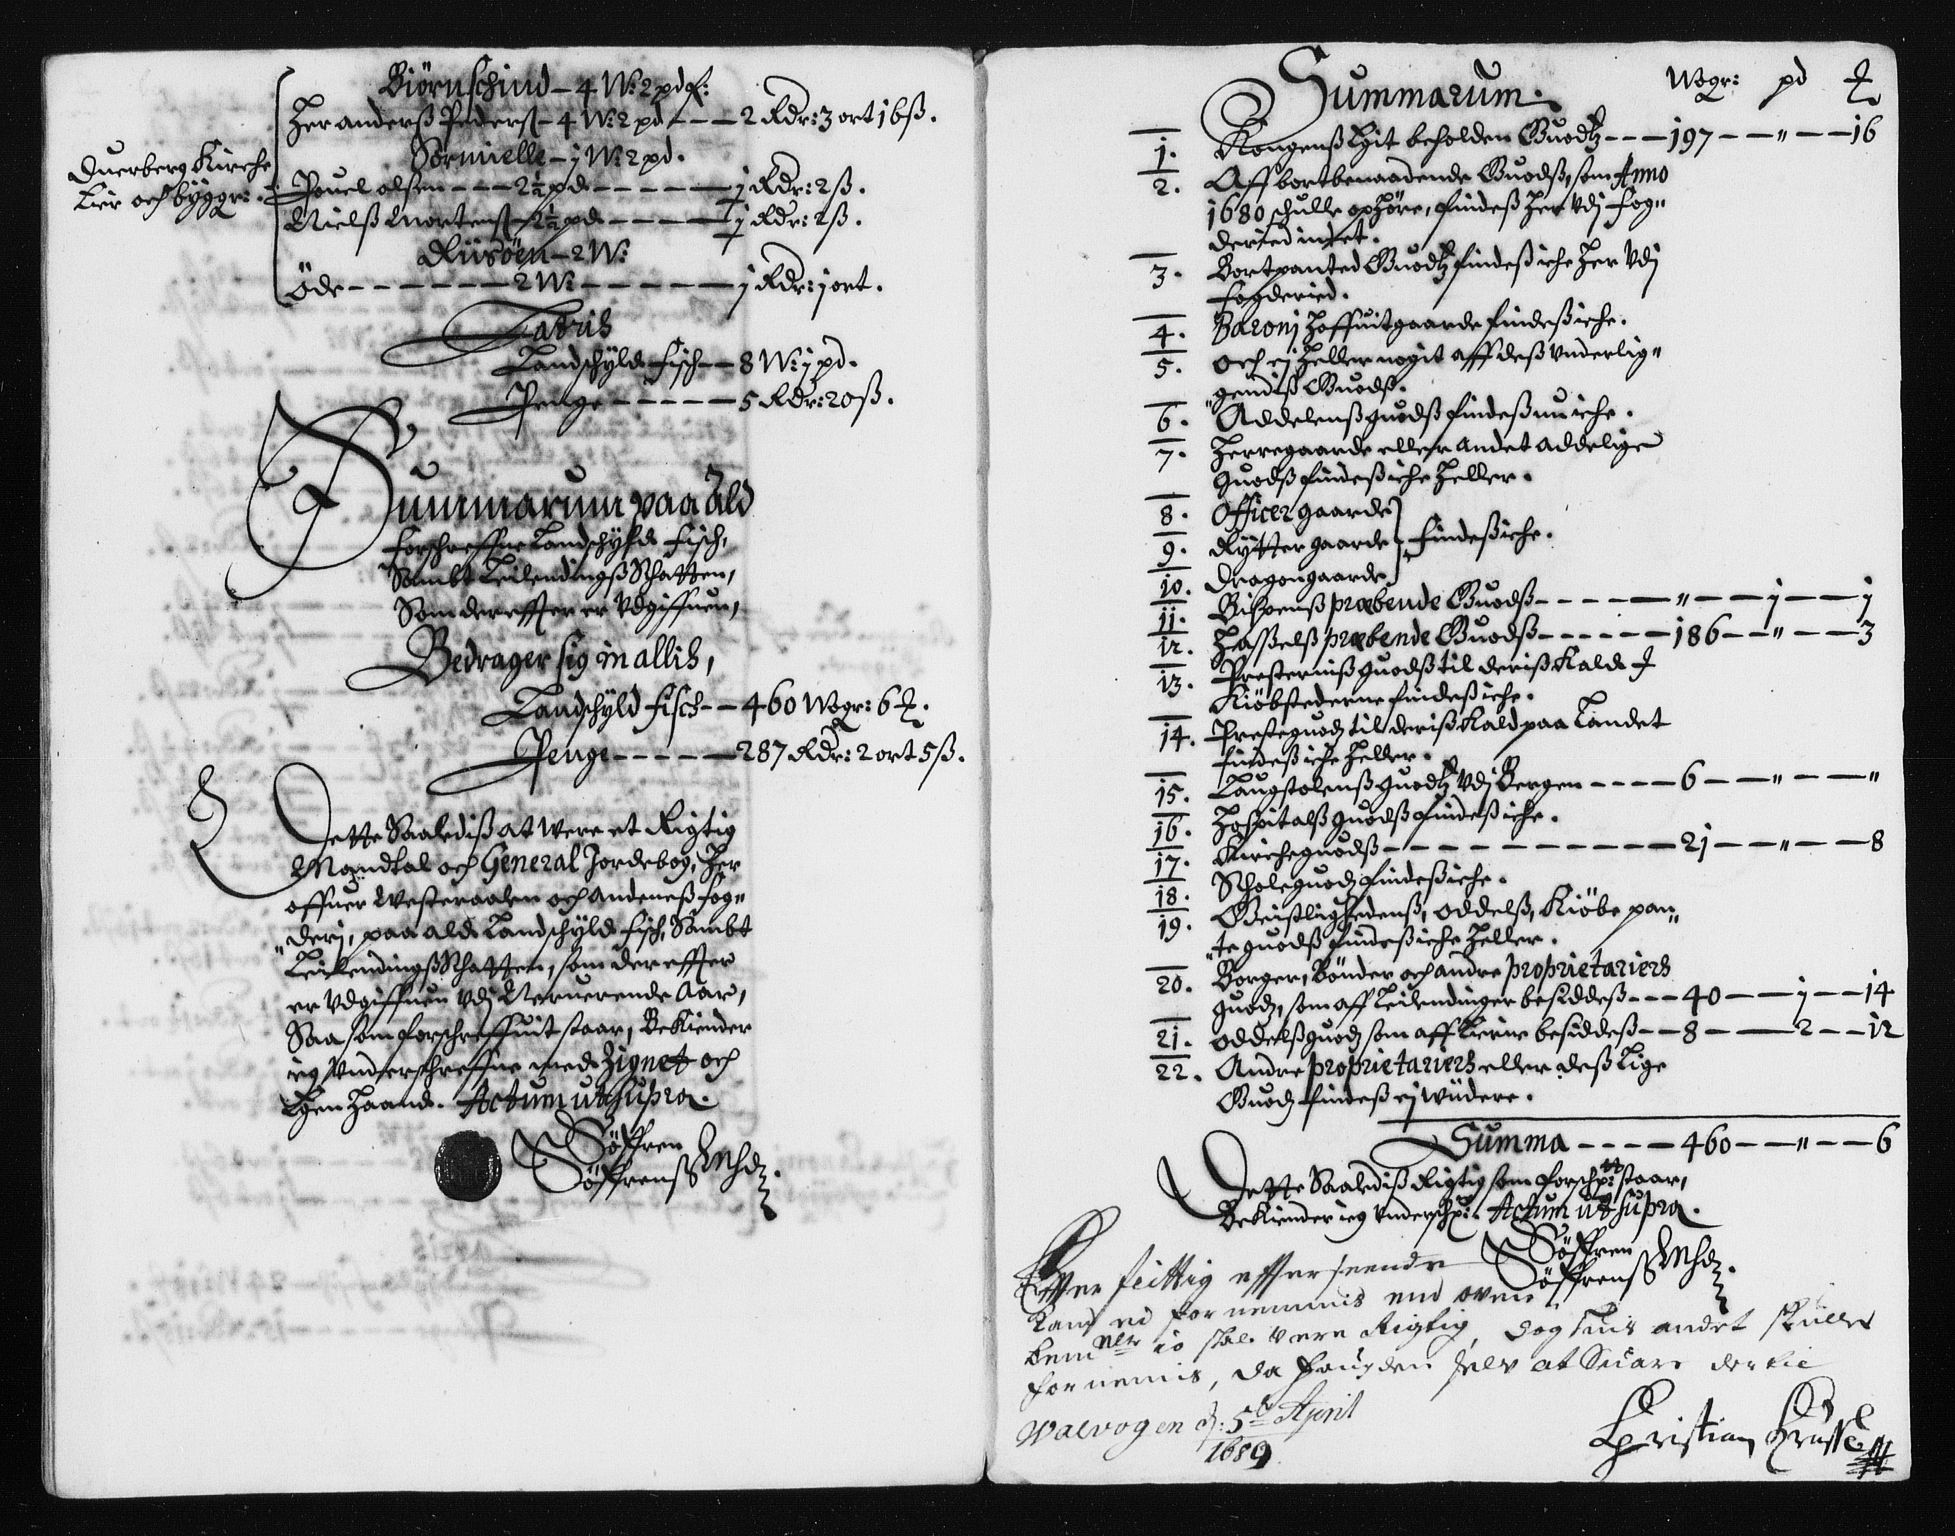 Biörnschind – 4 W: 2 pd f:
Her anderß Pederß – 4 W: 2 pd – – – 2 Rdr: 3 ort 16 ß.
Sormielle – j W: 2 pd.
Duerberg Kirche
Eier och bygger:
Pouel olsen – – – 2½ pd – – – – – j Rdr: 2 ß.
Nielß Mortenß – 2½ pd – – – – – j Rdr: 2 ß.
Riisöen – 2 W:
Öde – – – – – – – 2 W: – – – – – – j Rdr: j ort.
Lateris
Landschyld fisch – – 8 W: j pd.
Penge – – – – – 5 Rdr: 20 ß.
Summarum paa Ald
forschreffne Landschylds fisch,
Sambt Leilendingß Schatten,
Som derefter er Udgiffuen,
Bedrager sig in allis,
Landschyld fisch – – 460 Wogr: 6 ℔.
Penge – – – – – 287 Rdr: 2 ort 5 ß.
Dette Saaledis at were et Rigtig
Mandtal och General Jordebog, Her
offuer Westeraalen och andeneß fog„
„derj, paa ald Landschylds fisch, Sambt
Leilendingß Schatten, som derefter
er Udgiffuen Udj Neruerende Aar,
Saa som forschreffuit staar, Bekiender
ieg Underschreffne med Zignet och
Egen Haand. Actum ut supra.
Söffren
Söffrenß
Summarum. Wogr: pd ℔
1. Kongenß Egit beholden Guodtz – – – 197 – – „ – – 16
2. Aff bortbenaadende Guodß, som Anno
1680 schulle ophöre, findeß her Udj fog„
deriet intet.
3. Bortpanted Guodtz findeß iche her Udj
fogderied.
4. Baronj Hoffuitgaarde findeß iche.
5. och ej heller nogit aff deß Underlig„
„gendiß Guodß.
6. Addelenß guodß findeß nu iche.
7. Herregaarde eller andet addelige
guodß findeß iche heller.
8. Officer gaarde
9. Rytter gaarde findeß iche.
10. Dragon gaarde
11. Bispenß præbende Guodß – – – – – „ – – j – – j
12. Haßelß præbende Guodß – – – – – 186 – – „ – – 3
13. Presterniß guodß til deriß Kald J
Kiöbstederne findeß iche.
14. Presteguodz til deriß Kald paa Landet
findeß iche heller.
15. Laugstolenß guodtz Udj Bergen – – – – 6 – – „ – – „
16. Hospitalß guodß findeß iche.
17. Kircheguodß – – – – – – – – – – 21 – – „ – – 8
18. Scholeguodz findeß iche.
19. Geistlighedenß, oddelß, Kiöbe pan„
„te guodß findeß iche heller.
20. Borger, Bönder och andre proprietariers
guodz, som aff Leilendinger besiddeß – – – 40 – – j – – 14
21. oddelßguodz som aff Eierne besiddeß – – 8 – – 2 – – 12
22. Andre proprietariers eller deßlige
Guodz findeß ej widere.
Summa – – – – 460 – – „ – – 6
Dette Saaledis Rigtig som forschr: staar,
Bekiender ieg Underschr:. Actum ut supra.
Söffren
Söffrenß
Efter flittig efterseende
Kand ei fornemmis end oven
bem io skal were Rigtig, dog huis andet skulle
fornemis, da fougden selv at Suare dertil
Walvogen d: 5te April
1689
Christian Krusse